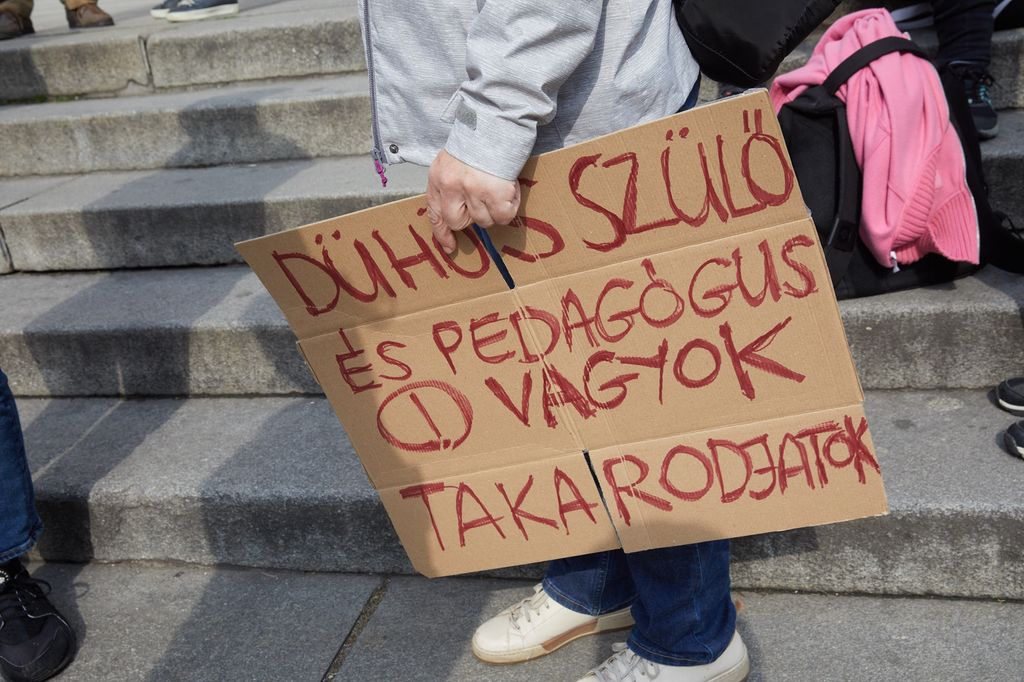 DÜHÖS SZÜLŐ
ÉS PEDAGÓGUS
(!) VAGYOK
TAKARODJATOK